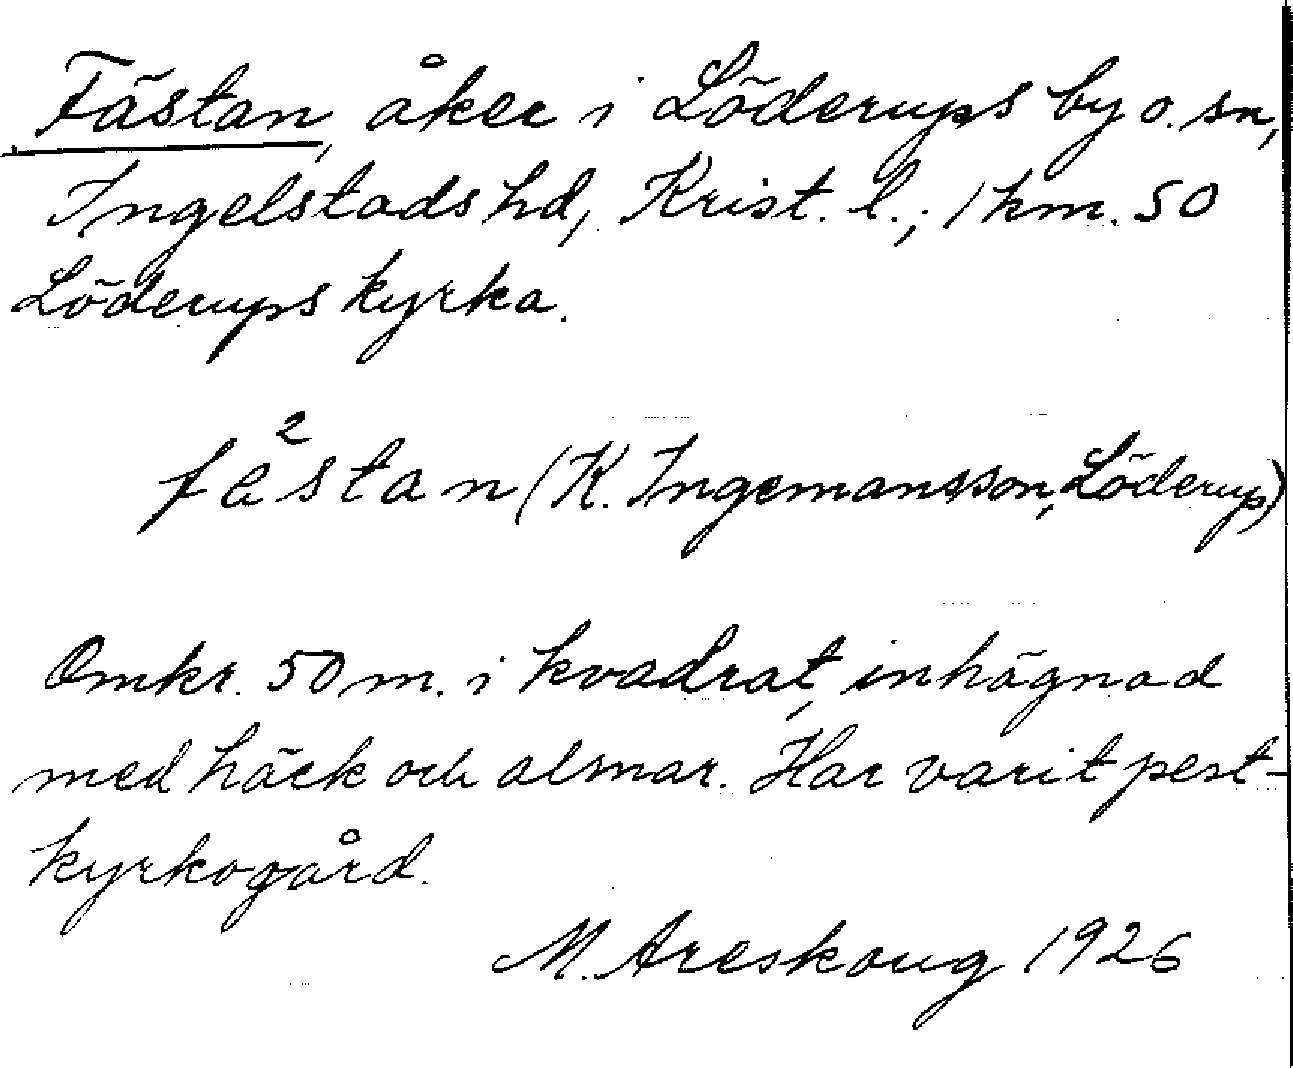 Fästan, åker i Löderups by o. sn,
Ingelstads hd, Krist. l.; 1 km. SO
Löderups kyrka.
fa²stan (K. Ingemansson, Löderup)
Omkr. 50 m. i kvadrat, inhägnad
med häck och almar. Har varit pest-
kyrkogård.
M. Areskoug 1926